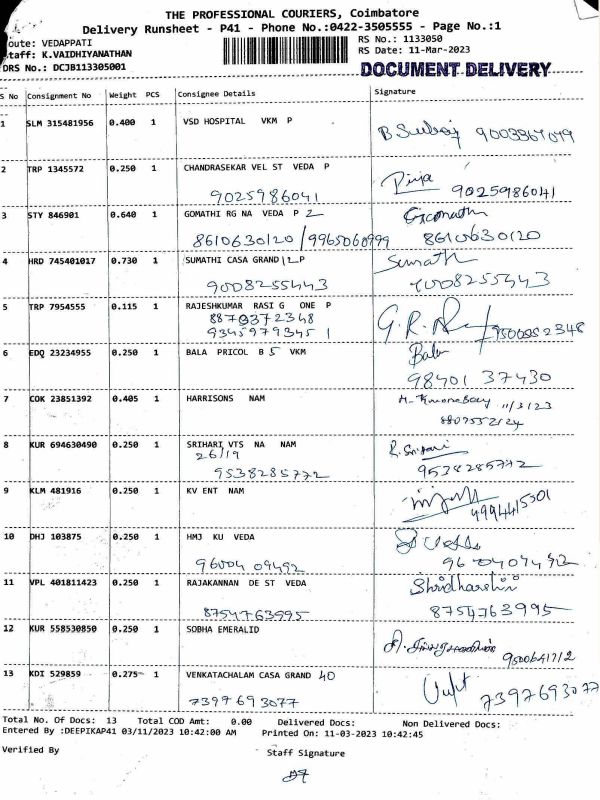 THE PROFESSIONAL COURIERS, Coimbatore
Delivery Runsheet - P41 - Phone No.:0422-3505555 - Page No.:1
oute: VEDAPPATI RS No.: 1133050
taff: K.VAIDHIYANATHAN RS Date: 11-Mar-2023
DRS No.: DCJB113305001 DOCUMENT DELIVERY
S No Consignment No Weight PCS Consignee Details Signature
1 SLM 315481956 0.400 1 VSD HOSPITAL VKM P
2 TRP 1345572 0.250 1 CHANDRASEKAR VEL ST VEDA P
9025986041 9025986041
3 STY 846901 0.640 1 GOMATHI RG NA VEDA P 2 Gomath
8610630120 / 9965060999 8610630120
4 HRD 745401017 0.730 1 SUMATHI CASA GRAND P Sumath
9008255443 9008255443
5 TRP 7954555 0.115 1 RAJESHKUMAR RASI G ONE P
8870372348
9345979345
6 EDQ 23234955 0.250 1 BALA PRICOL B 5 VKM Bala
98401 37430
7 COK 23851392 0.405 1 HARRISONS NAM 11/3/23
8 KUR 694630490 0.250 1 SRIHARI VTS NA NAM
26/19
9538285772 9538285772
9 KLM 481916 0.250 1 KV ENT NAM
10 DHJ 103875 0.250 1 HMJ KU VEDA
96004 09492
11 VPL 401811423 0.250 1 RAJAKANNAN DE ST VEDA Shridharshini
8754763995 8754763995
12 KUR 558530850 0.250 1 SOBHA EMERALID
9500641712
13 KDI 529859 0.275 1 VENKATACHALAM CASA GRAND 40
7397693077 7397693077
Total No. Of Docs: 13 Total COD Amt: 0.00 Delivered Docs: Non Delivered Docs:
Entered By :DEEPIKAP41 03/11/2023 10:42:00 AM Printed On: 11-03-2023 10:42:45
Verified By Staff Signature